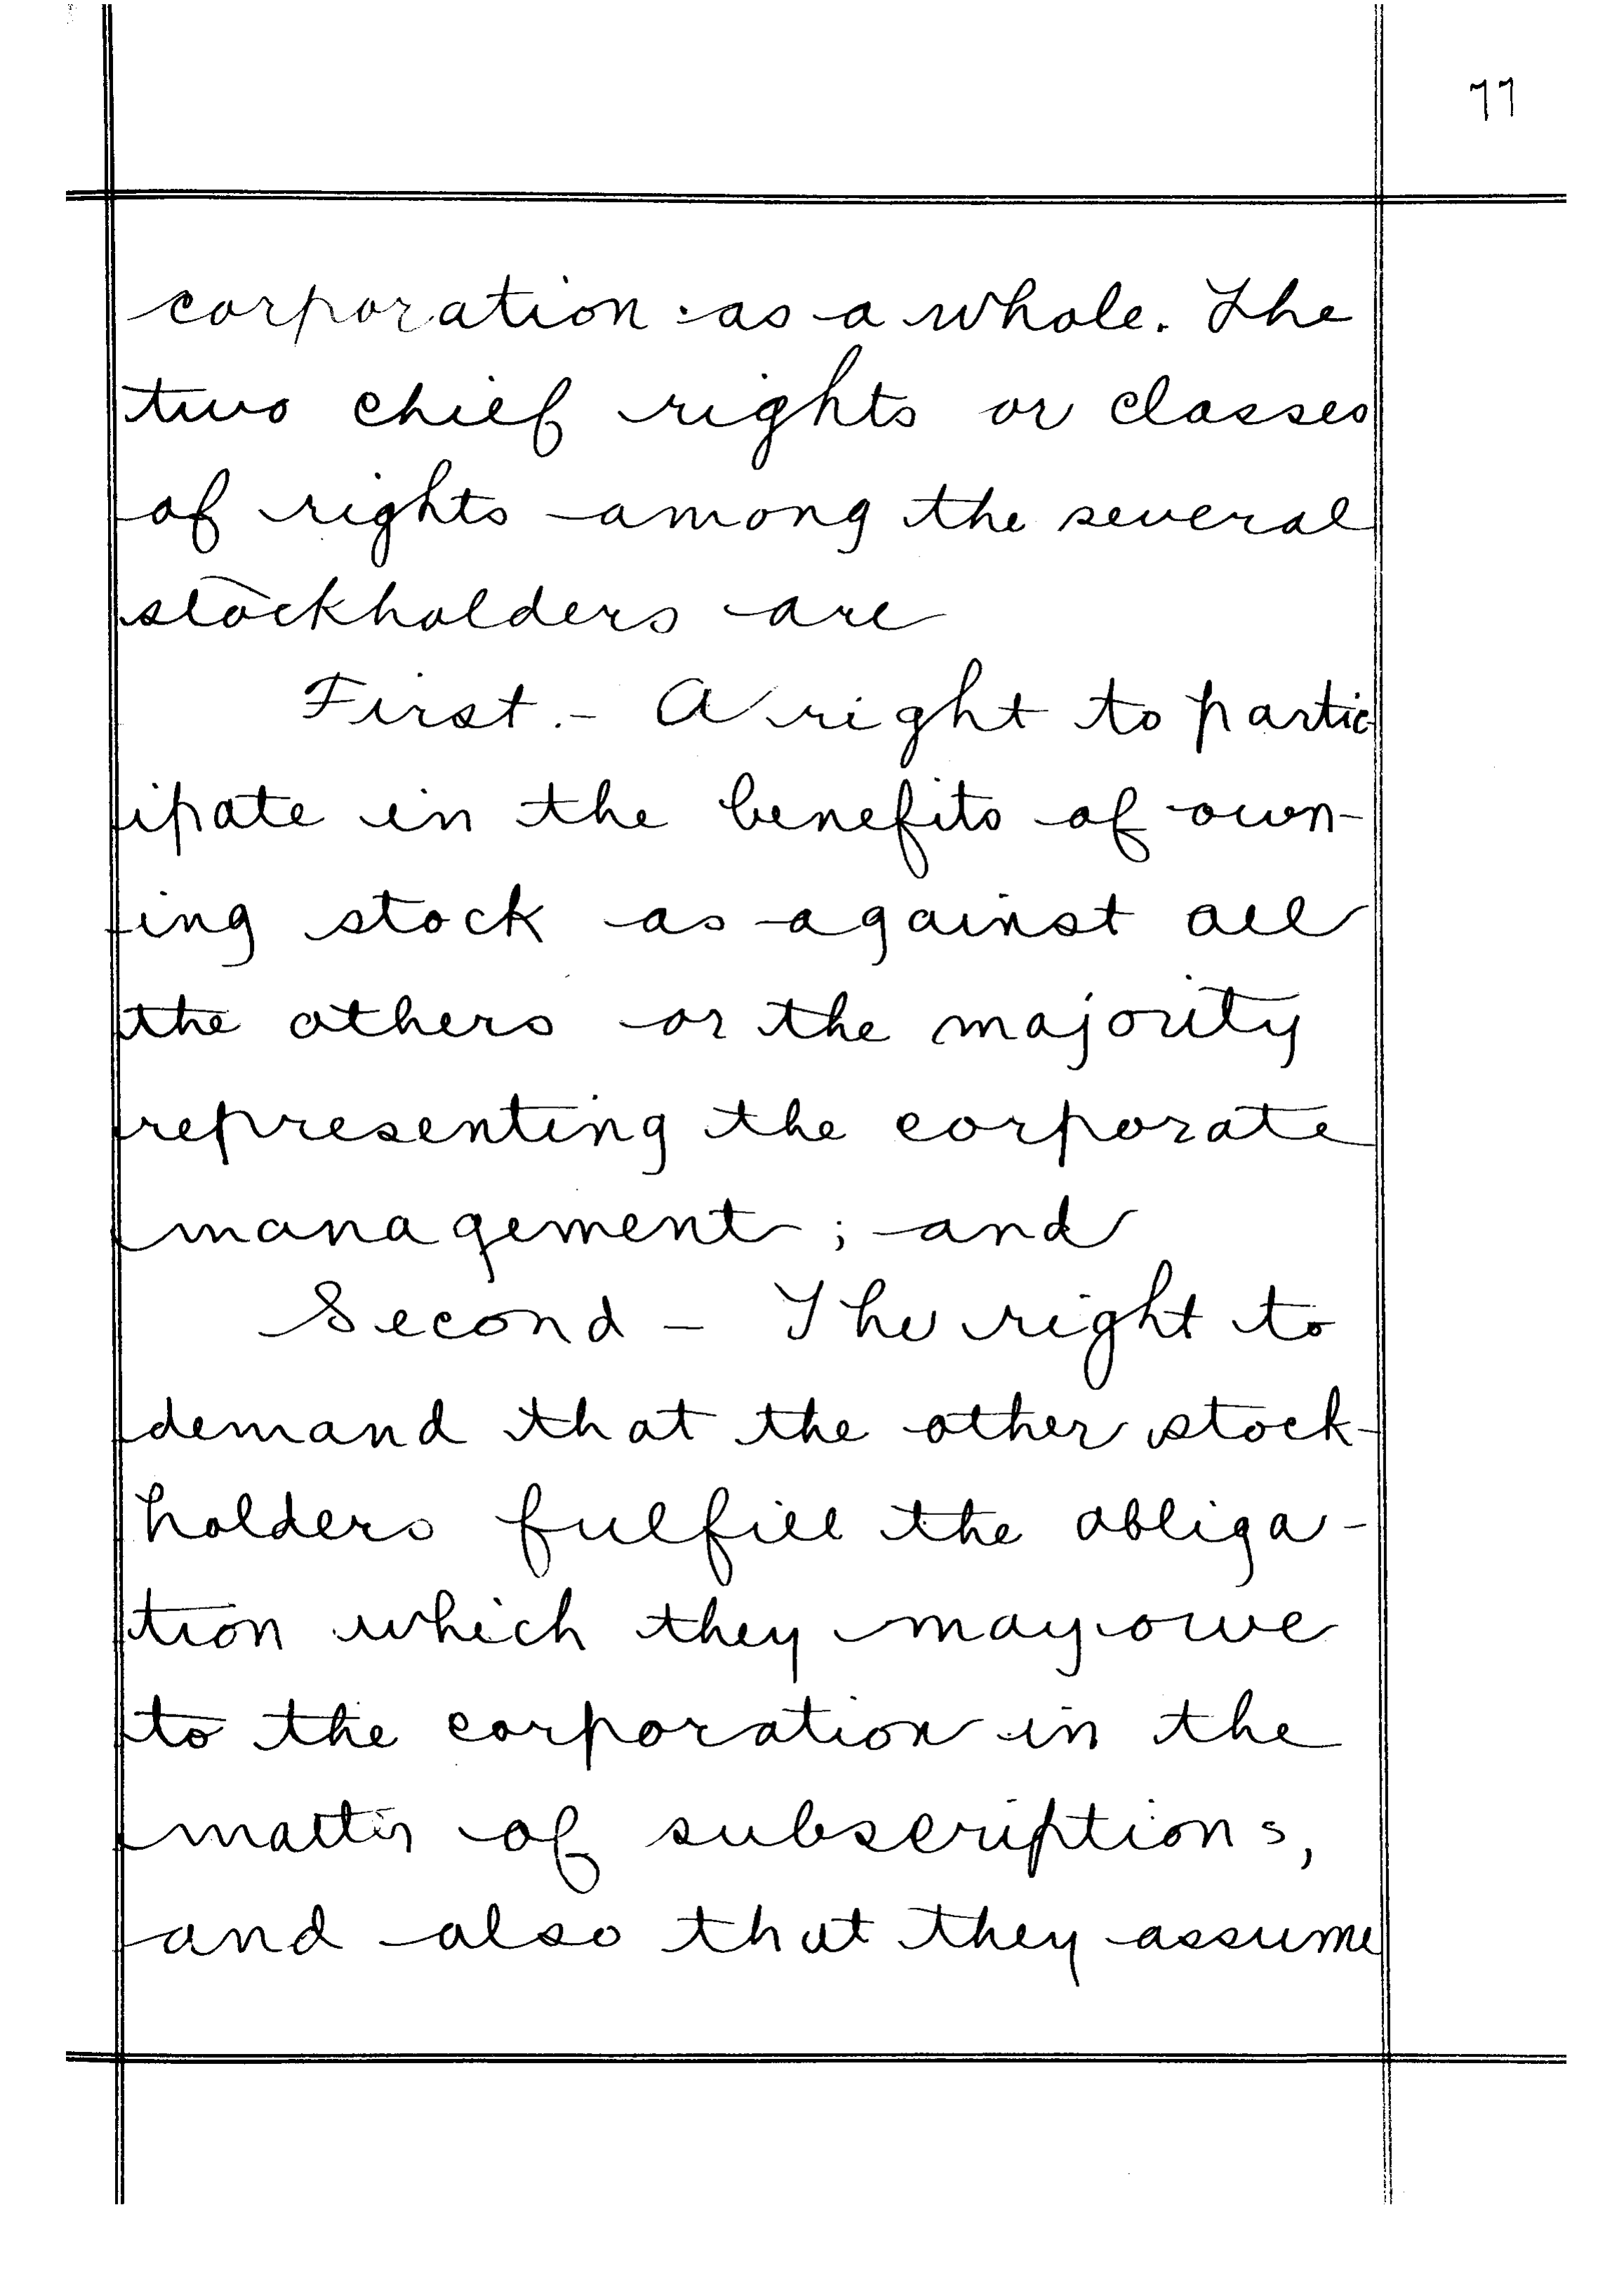 77
corporation as a whole. The
two chief rights or classes
of rights among the several
stockholders are
First.- A right to partic-
ipate in the benefits of own-
ing stock as against all
the others or the majority
representing the corporate
management; and
Second - The right to
demand that the other stock-
holders fulfill the obliga-
tion which they may owe
to the corporation in the
matter of subscriptions,
and also that they assume